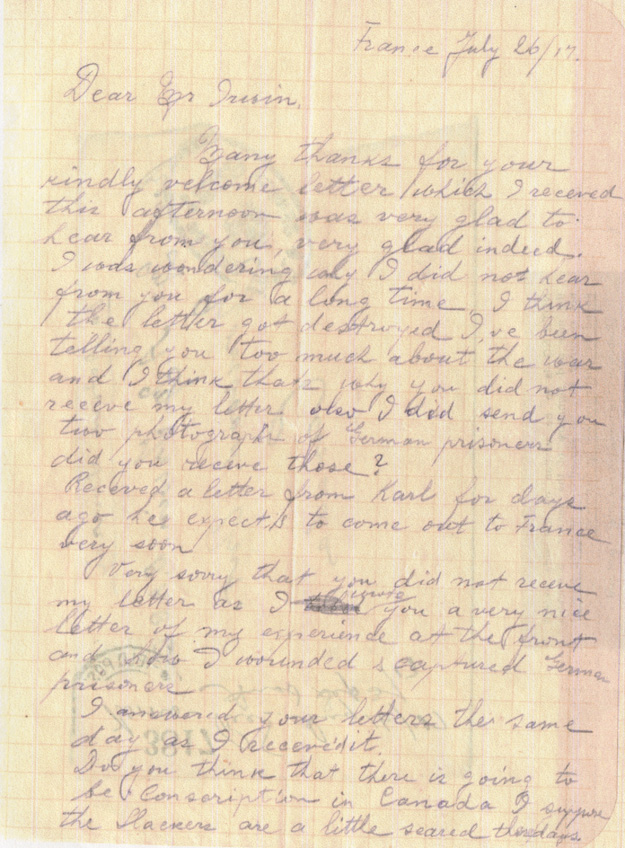 France July 26/17.
Dear Mr Irwin.
Many thanks for your
kindly velcome letter which I receved
this afternoon was very glad to
hear from you, very glad indeed.
I was wondering why I did not hear
from you for a long time, I think
the letter got destroyed I,ve been
telling you too much about the war
and I think thats why you did not
receve my letter also I did send you
two photographs of German prisoners
did you receve those?
Receved a letter from Karl for days
ago hes expects to come out to France
very soon
Very sorry that you did not receve
my letter as I wrote you a very nice
letter of my experience at the front
and how I wounded & captured German
prisoners
I answered your letters the same
day as I recevedit.
Do you think that there is going to
be Conscription in Canada I suppose
the slackers are a little scared